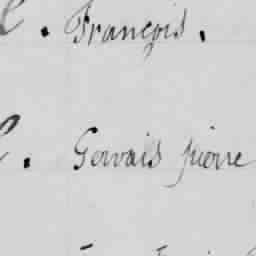 . François.
. Gervais pierre